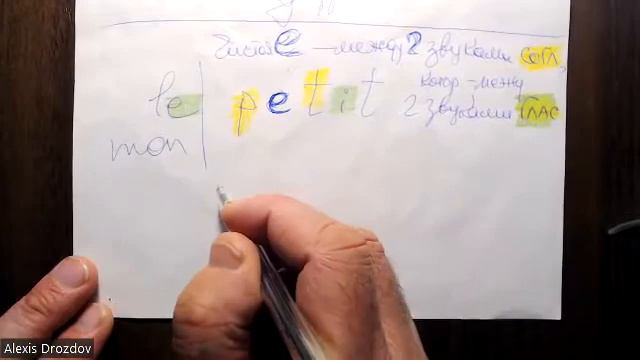 е – между 2 звуками согл,
котор – между
2 звуками глас
le petit
mon
Alexis Drozdov